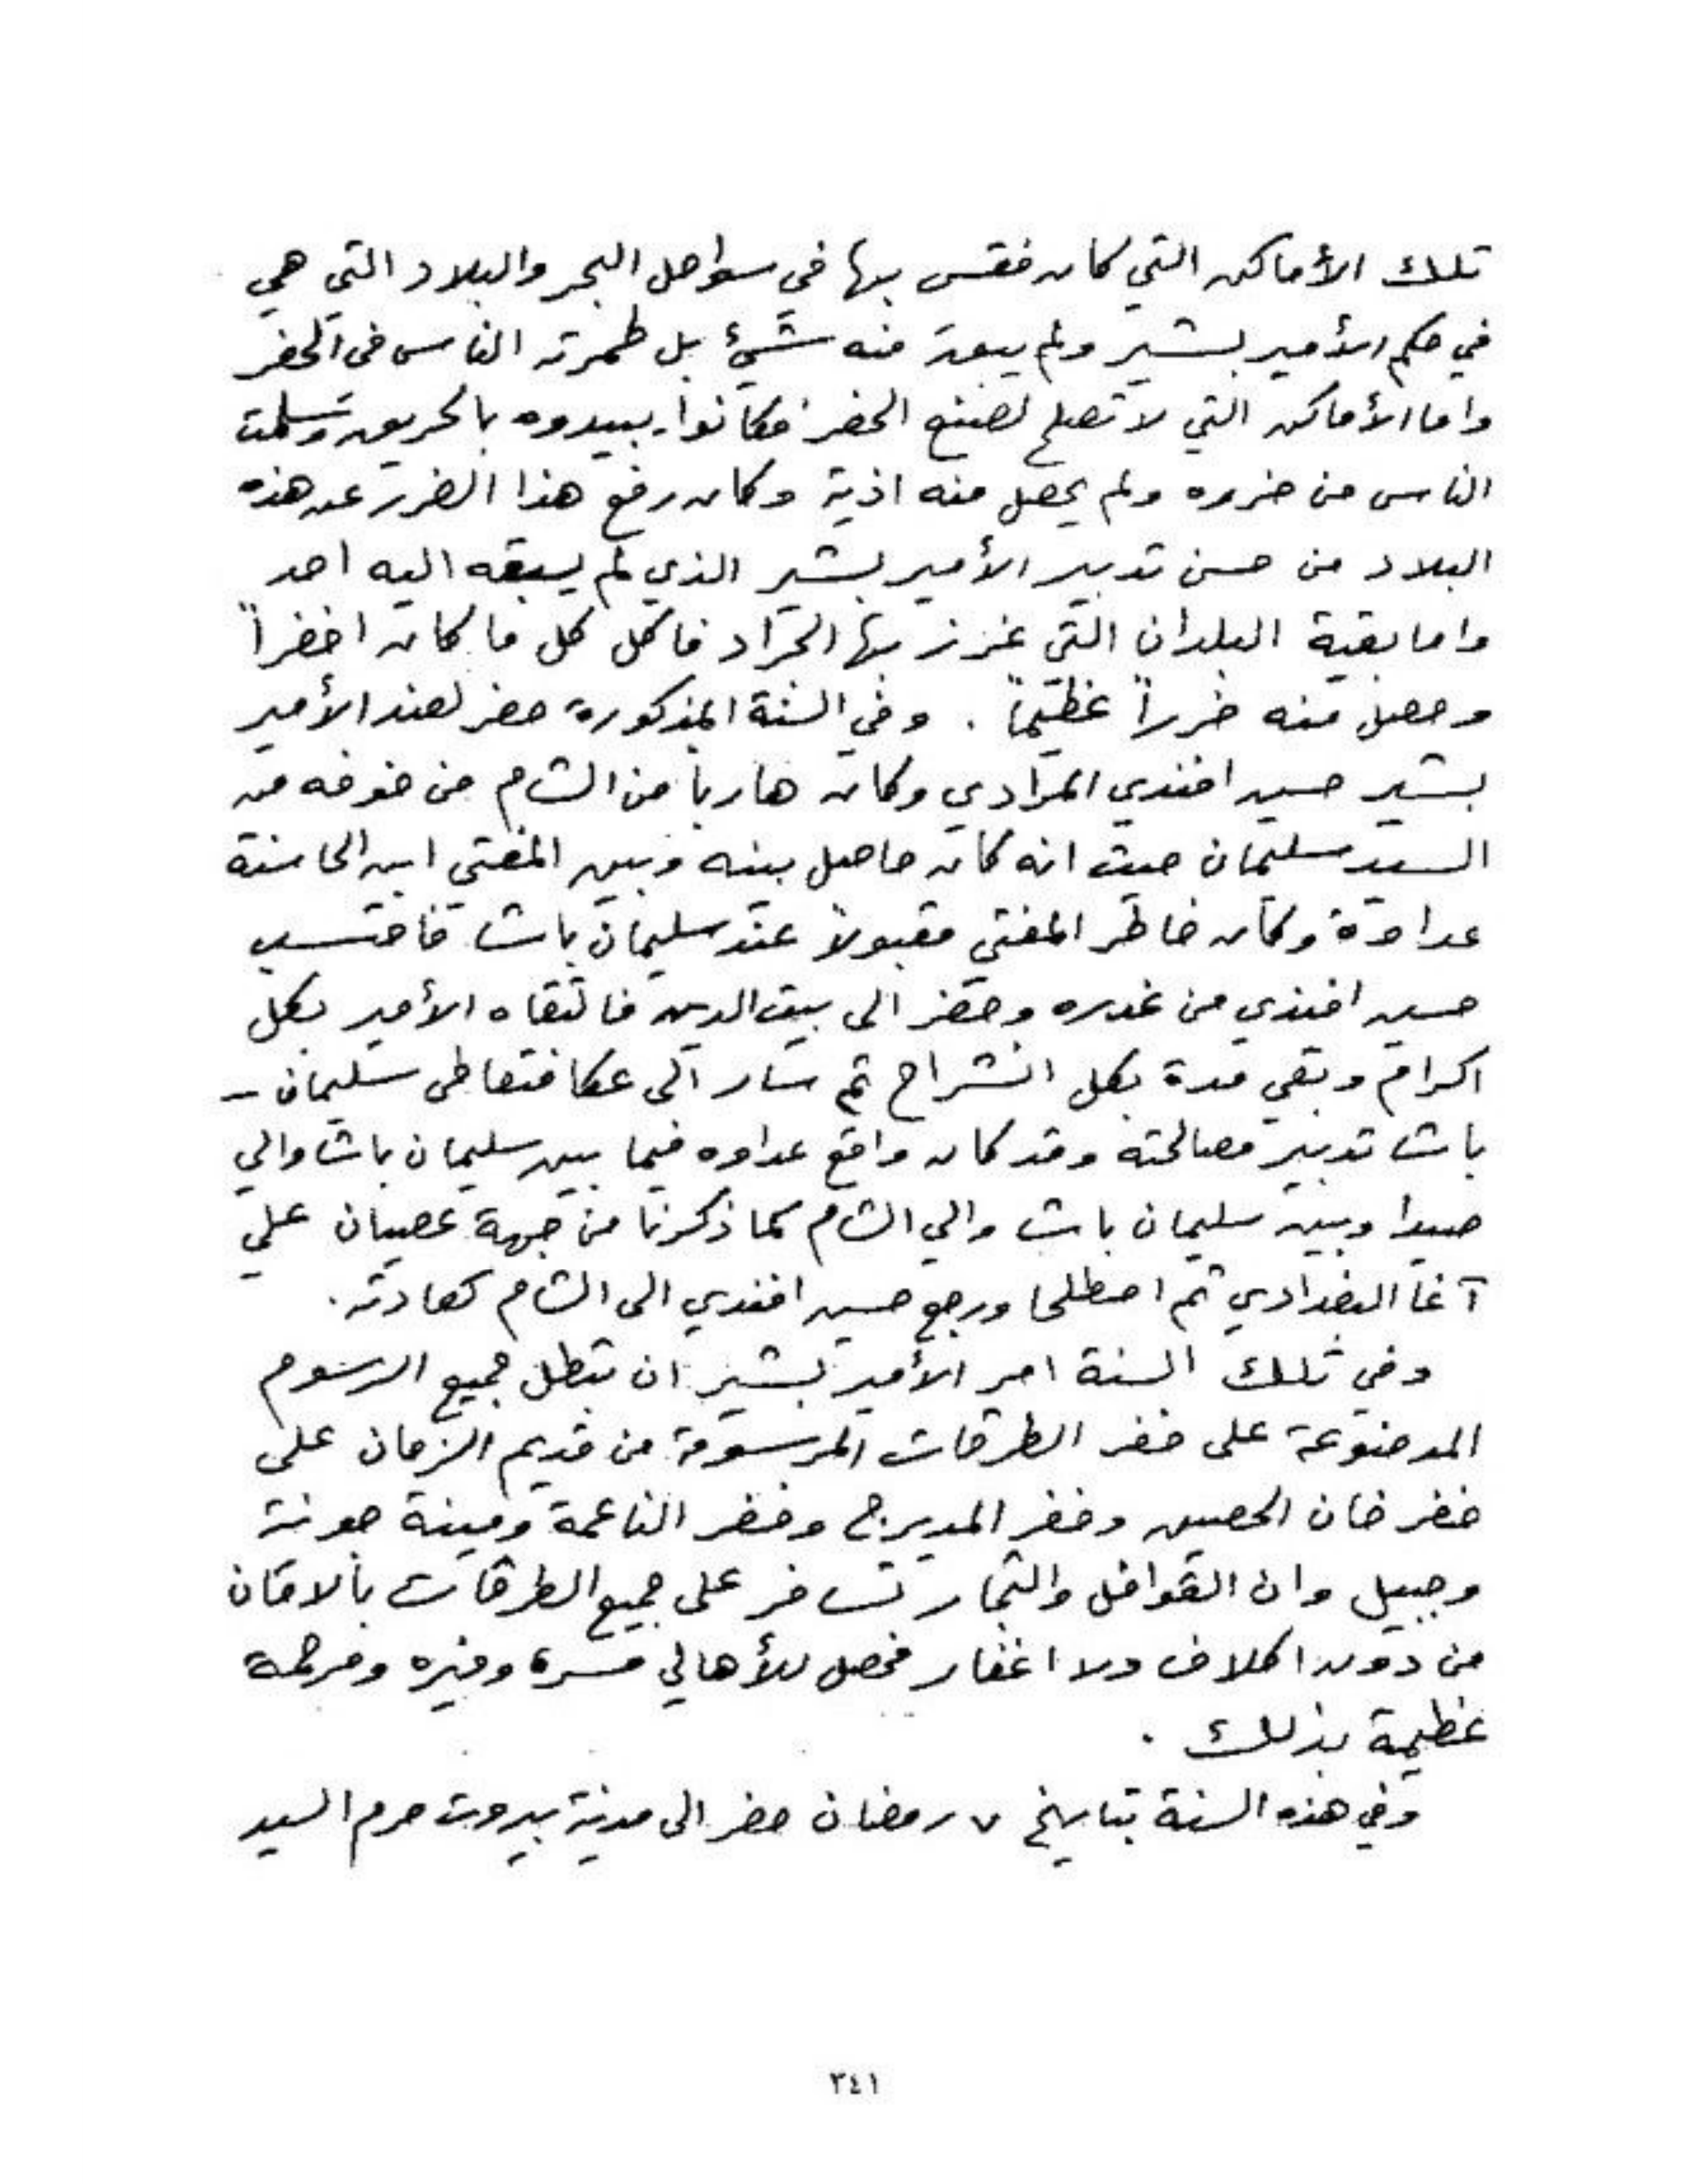 تلك الأماكن التي كان فقس بها في سواحل البحر والبلاد التي هي
في حكم الأمير بشير ولم يبق منه شيئ بل طمرته الناس في الحفر
واما الأماكن التي لا تصلح لصنع الحفر فكانوا يبيدوه بالحريق وسلمت
الناس من ضرره ولم يحصل منه اذية وكان رفع هذا الضرر عن هذه
البلاد من حسن تدبير الأمير بشير الذي لم يسبقه اليه احد
واما بقية البلدان التي غرز بها الجراد فاكل كل ما كان اخضراً
وحصل منه ضرراً عظيماً . وفي السنة المذكورة حضر لعند الأمير
بشير حسين افندي المرادي وكان هارباً من الشام من خوفه من
السيد سليمان حيث انه كان حاصل بينه وبين المفتي ابن الحاسنة
عداوة وكان خاطر المفتي مقبولاً عند سليمان باشا فاحتسب
حسين افندي من غدره وحضر الى بيت الدين فالتقاه الأمير بكل
اكرام وبقي مدة بكل انشراح ثم سار الى عكا فتعاطى سليمان -
باشا تدبير مصالحته وقد كان واقع عداوه فيما بين سليمان باشا والي
صيدا وبين سليمان باشا والي الشام كما ذكرنا من جهة عصيان علي
آغا البغدادي ثم اصطلحا ورجع حسين افندي الى الشام كعادته .
وفي تلك السنة امر الأمير بشير ان تبطل جميع الرسوم
الموضوعة على خفر الطرقات المرسومة من قديم الزمان على
خفر خان الحصين وخفر المديرج وخفر الناعمة ومينة جونية
وجبيل وان القوافل والتجار تسافر على جميع الطرقات بالامان
من دون اكلاف ولا اغفار فحصل للأهالي مسرة وفيره ومرحمة
عظيمة بذلك .
وفي هذه السنة بتاريخ ٧ رمضان حضر الى مدينة بيروت حرم السيد
٣٤١